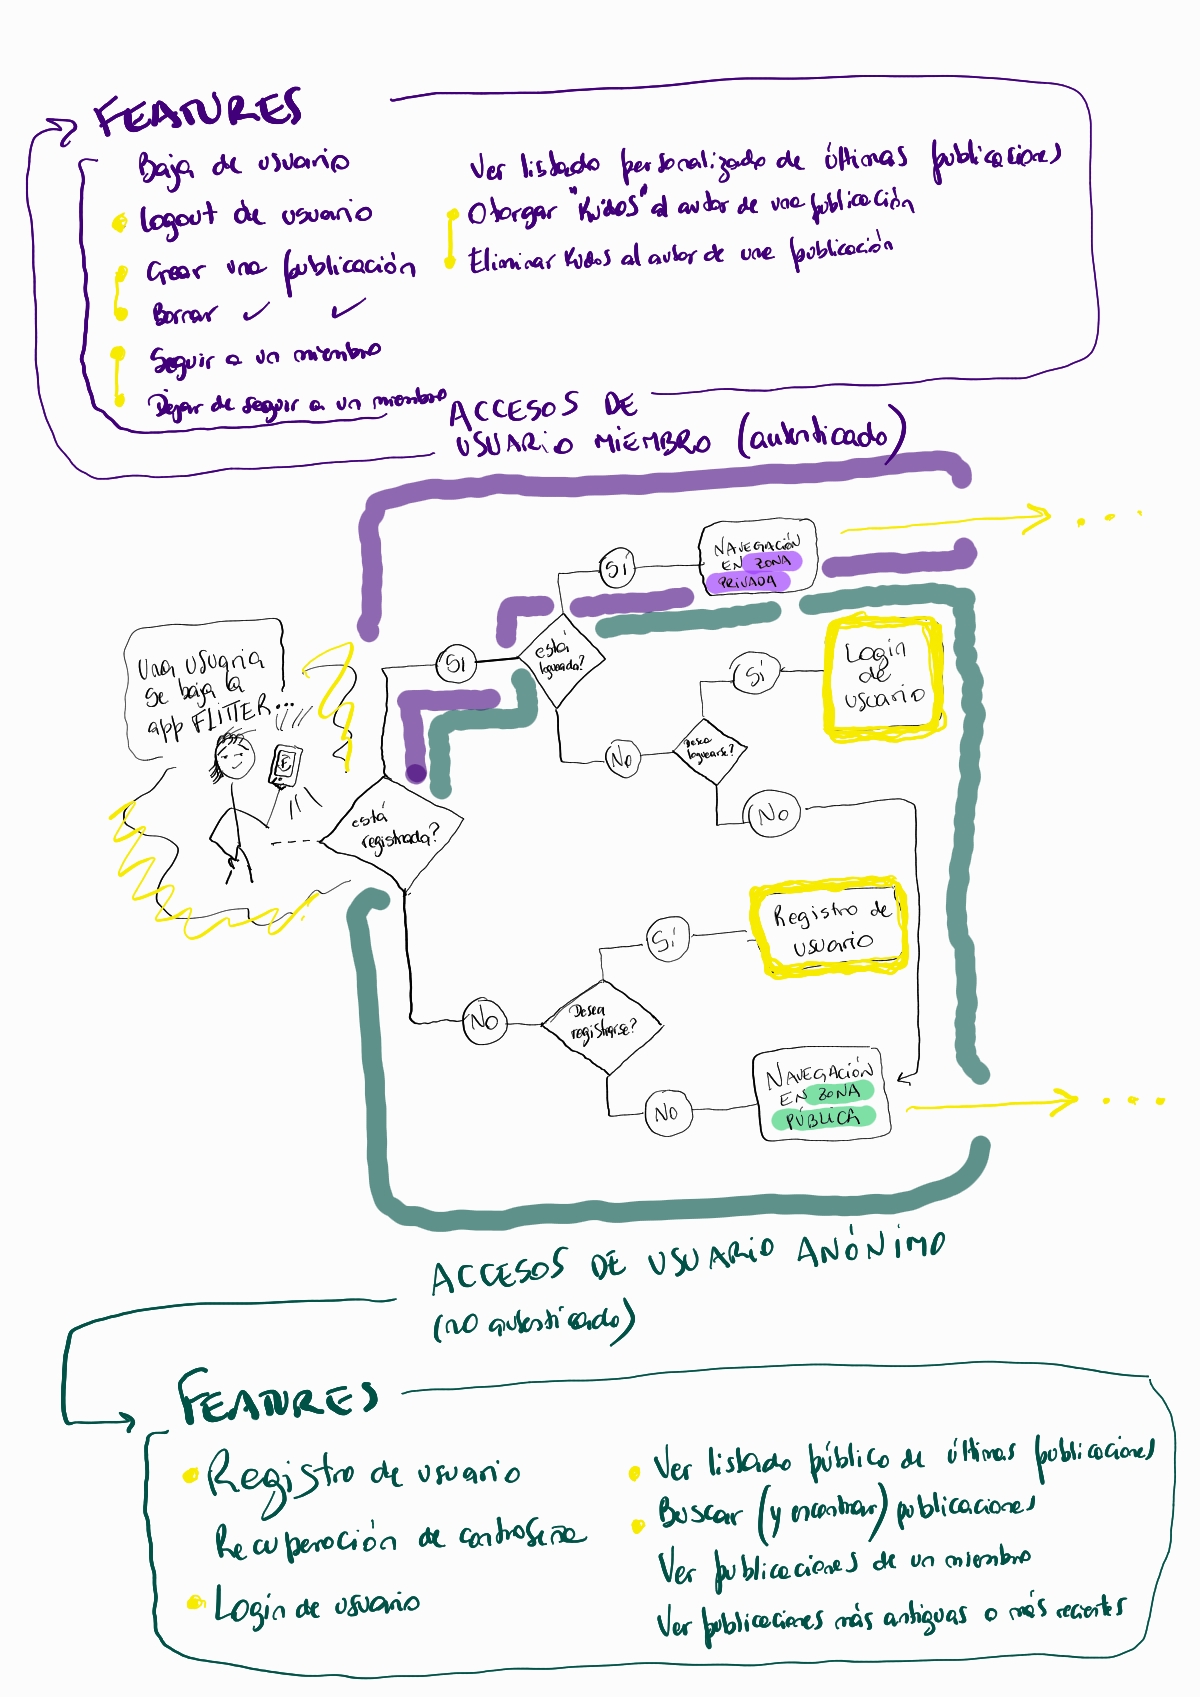 FEATURES
Baja de usuario
Logout de usuario
Crear una publicación
Borrar ✓ ✓
Seguir a un miembro
Dejar de seguir a un miembro
Ver listado personalizado de últimas publicaciones
Otorgar "Kudos" al autor de una publicación
Eliminar Kudos al autor de una publicación
ACCESOS DE
USUARIO MIEMBRO (autenticado)
NAVEGACIÓN
EN ZONA
PRIVADA
SÍ
está
logueada?
SI
Una usuaria
se baja la
app FLITTER...
F
Login
de
usuario
SÍ
Desea
loguearse?
No
No
está
registrada?
Registro de
usuario
SÍ
Desea
registrarse?
No
No
NAVEGACIÓN
EN ZONA
PÚBLICA
ACCESOS DE USUARIO ANÓNIMO
(no autenticado)
FEATURES
Registro de usuario
Recuperación de contraseña
Login de usuario
Ver listado público de últimas publicaciones
Buscar (y encontrar) publicaciones
Ver publicaciones de un miembro
Ver publicaciones más antiguas o más recientes